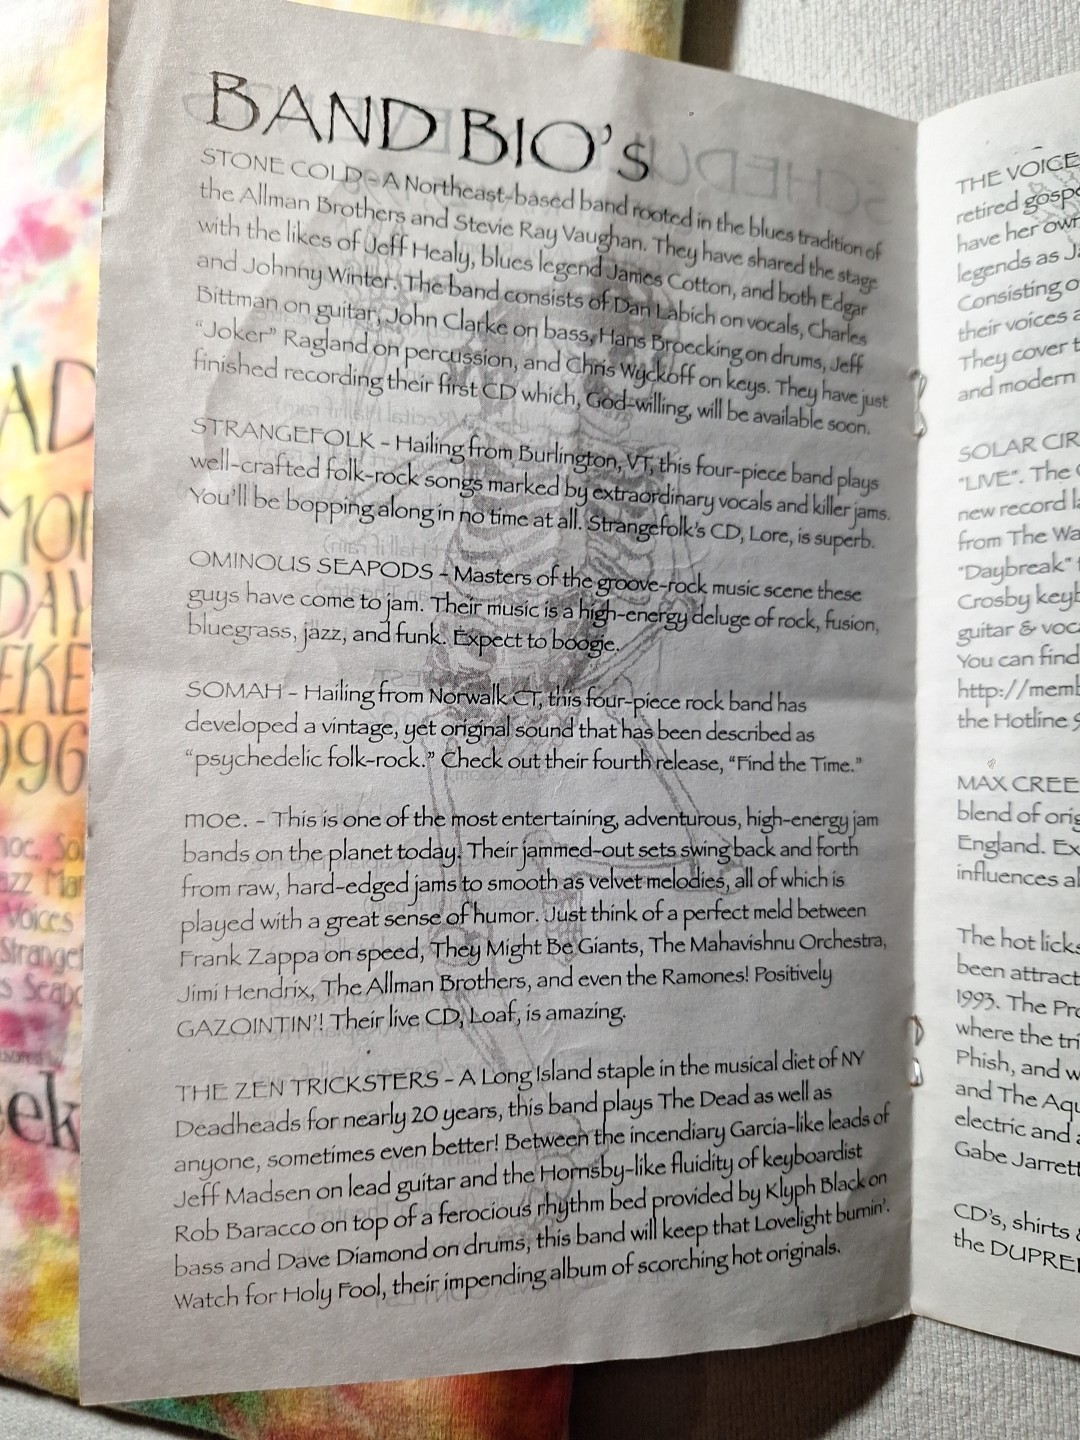 BAND BIO's
STONE COLD - A Northeast-based band rooted in the blues tradition of
the Allman Brothers and Stevie Ray Vaughan. They have shared the stage
with the likes of Jeff Healy, blues legend James Cotton, and both Edgar
and Johnny Winter. The band consists of Dan Labich on vocals, Charles
Bittman on guitar, John Clarke on bass, Hans Broecking on drums, Jeff
"Joker" Ragland on percussion, and Chris Wyckoff on keys. They have just
finished recording their first CD which, God-willing, will be available soon.
STRANGEFOLK - Hailing from Burlington, VT, this four-piece band plays
well-crafted folk-rock songs marked by extraordinary vocals and killer jams.
You'll be bopping along in no time at all. Strangefolk's CD, Lore, is superb.
OMINOUS SEAPODS - Masters of the groove-rock music scene these
guys have come to jam. Their music is a high-energy deluge of rock, fusion,
bluegrass, jazz, and funk. Expect to boogie.
SOMAH - Hailing from Norwalk CT, this four-piece rock band has
developed a vintage, yet original sound that has been described as
"psychedelic folk-rock." Check out their fourth release, "Find the Time."
moe. - This is one of the most entertaining, adventurous, high-energy jam
bands on the planet today. Their jammed-out sets swing back and forth
from raw, hard-edged jams to smooth as velvet melodies, all of which is
played with a great sense of humor. Just think of a perfect meld between
Frank Zappa on speed, They Might Be Giants, The Mahavishnu Orchestra,
Jimi Hendrix, The Allman Brothers, and even the Ramones! Positively
GAZOINTIN'! Their live CD, Loaf, is amazing.
THE ZEN TRICKSTERS - A Long Island staple in the musical diet of NY
Deadheads for nearly 20 years, this band plays The Dead as well as
anyone, sometimes even better! Between the incendiary Garcia-like leads of
Jeff Madsen on lead guitar and the Hornsby-like fluidity of keyboardist
Rob Baracco on top of a ferocious rhythm bed provided by Klyph Black on
bass and Dave Diamond on drums, this band will keep that Lovelight burnin'.
Watch for Holy Fool, their impending album of scorching hot originals.
THE VOICE
retired gosp
have her own
legends as J
Consisting o
their voices a
They cover t
and modern
SOLAR CIR
"LIVE". The
new record l
from The Wa
"Daybreak"
Crosby keyb
guitar & voc
You can find
http://memb
the Hotline
MAX CREE
blend of orig
England. Ex
influences al
The hot licks
been attract
1993. The Pro
where the tri
Phish, and w
and The Aqu
electric and
Gabe Jarrett
CD's, shirts &
the DUPREE
AD
MOR
DAY
EKE
996
moe, Sol
azz Man
Voices
Strangef
s Seapo
eek